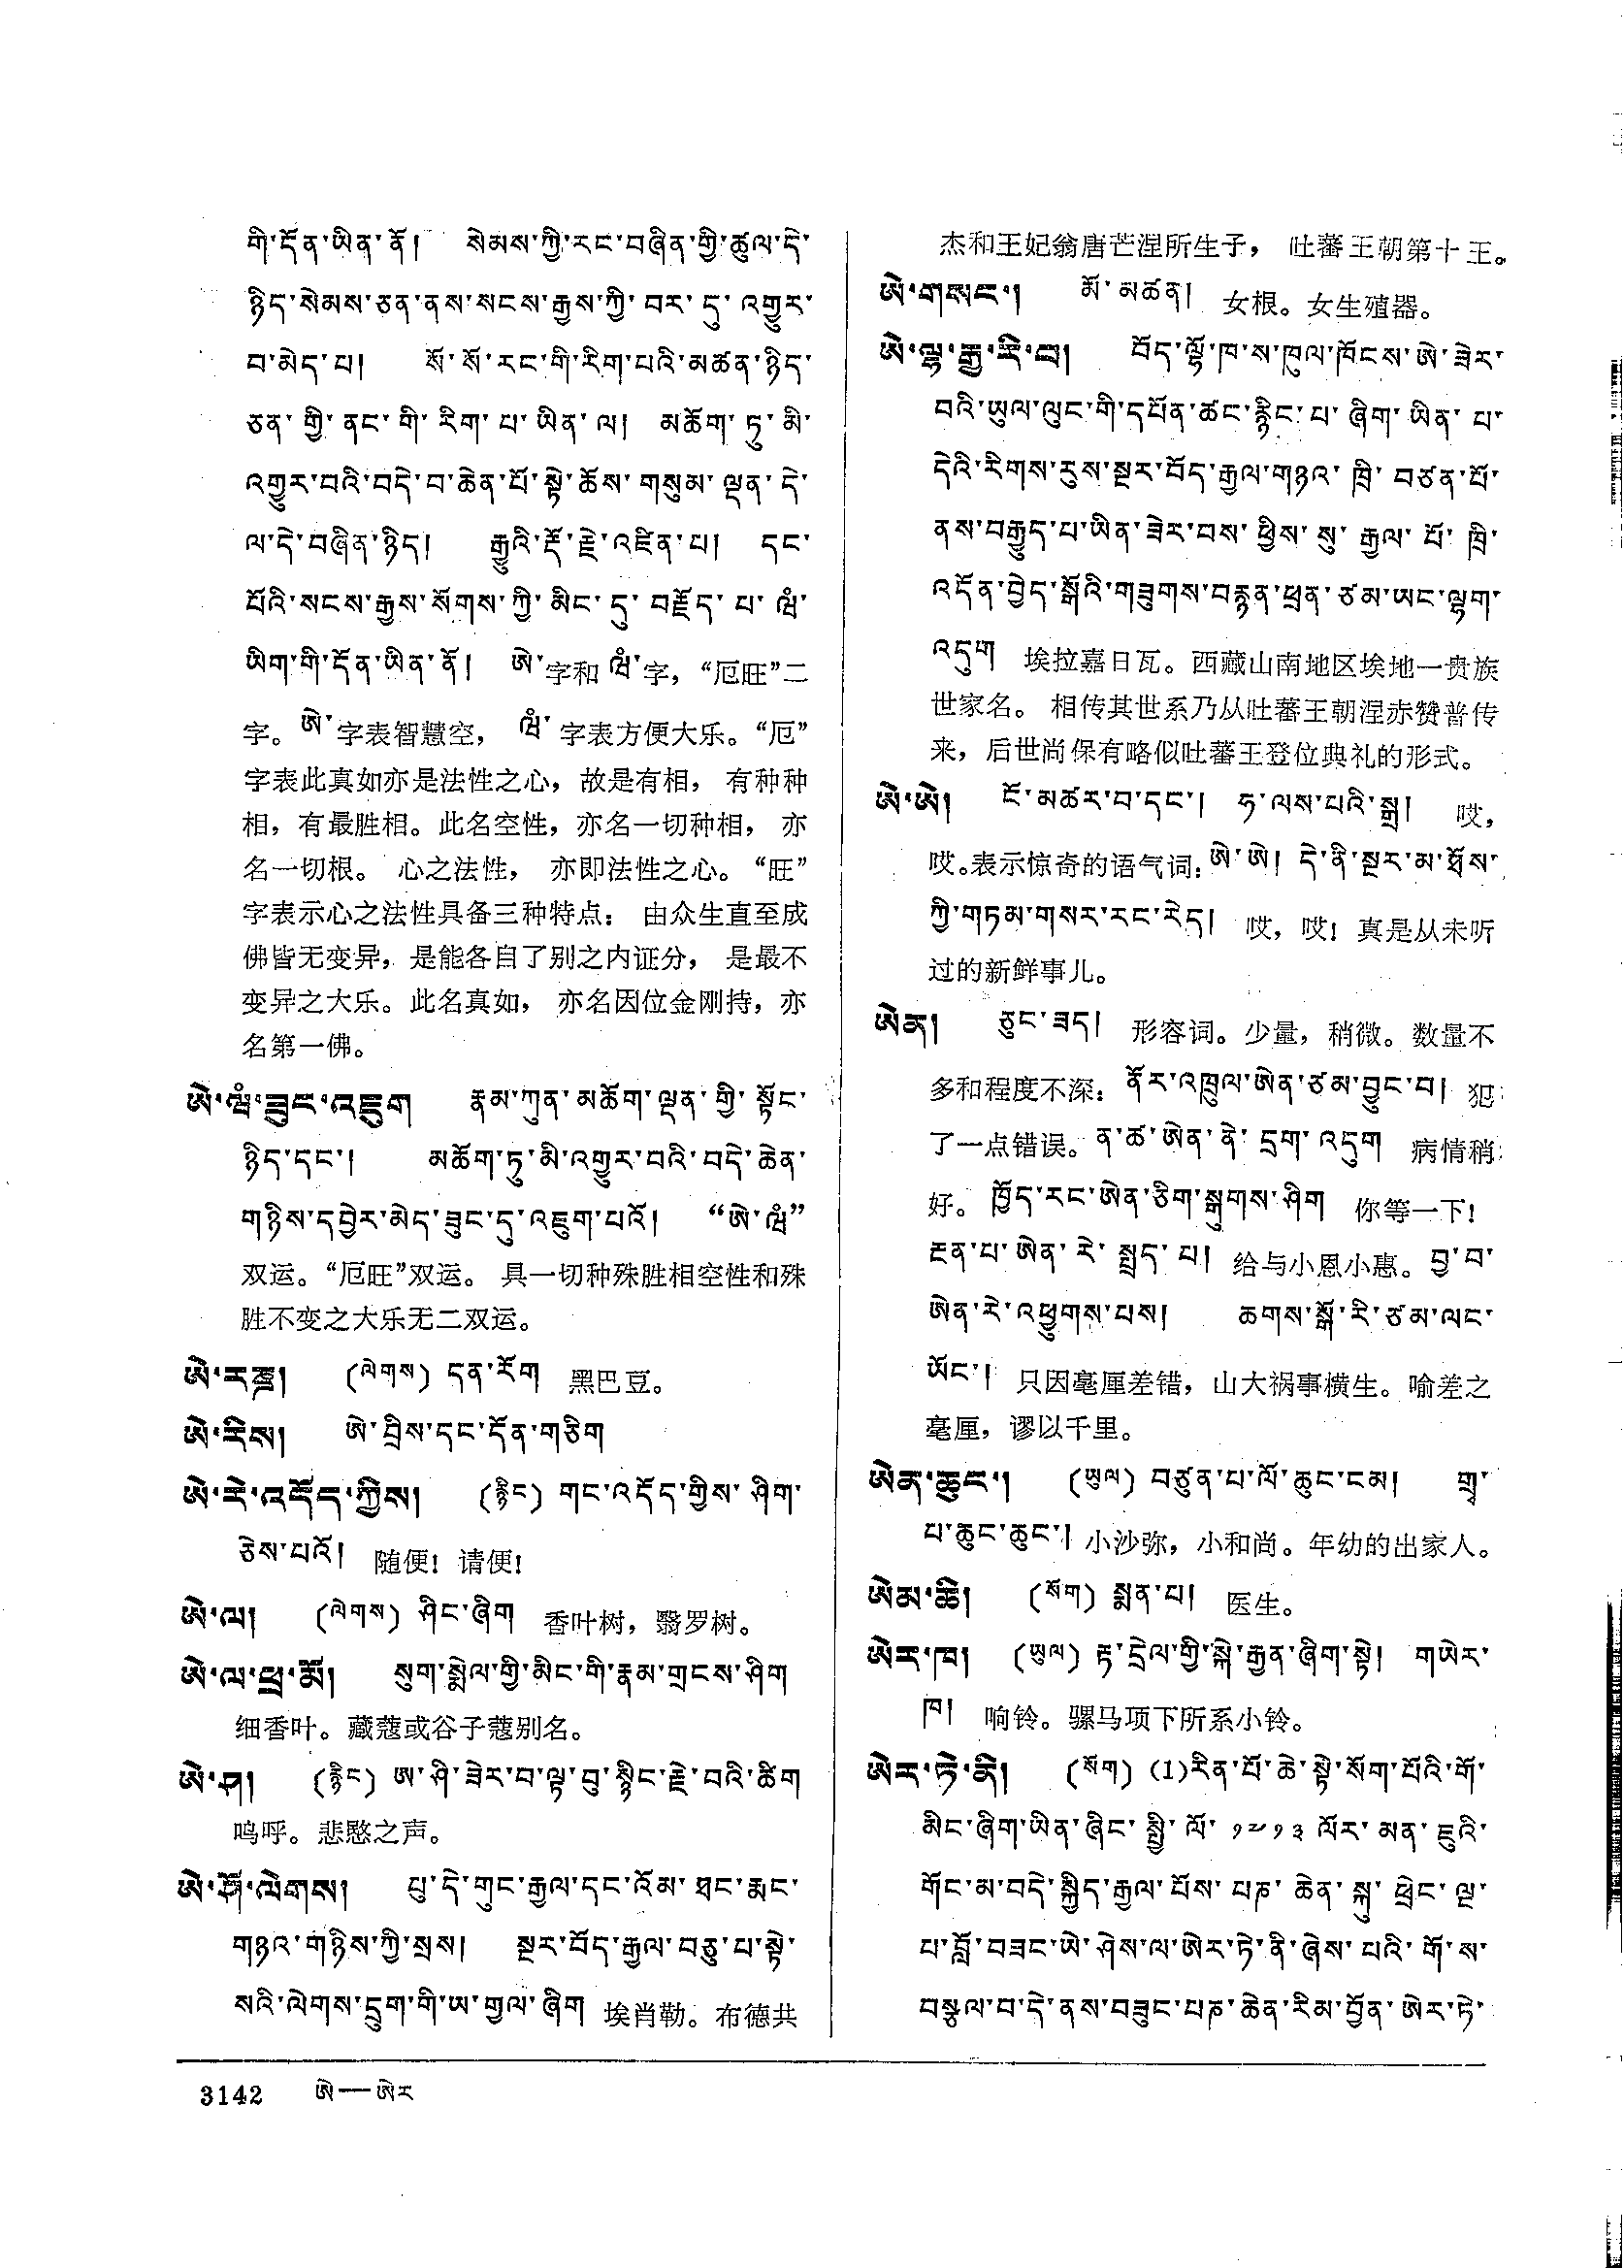 གི་དོན་ཡིན་ནོ། སེམས་ཀྱི་རང་བཞིན་གྱི་ཚུལ་དེ་
ཉིད་སེམས་ཅན་ནས་སངས་རྒྱས་ཀྱི་བར་དུ་འགྱུར་
བ་མེད་པ། སོ་སོ་རང་གི་རིག་པའི་མཚན་ཉིད་
ཅན་གྱི་ནང་གི་རིག་པ་ཡིན་ལ། མཆོག་ཏུ་མི་
འགྱུར་བའི་བདེ་བ་ཆེན་པོ་སྟེ་ཆོས་གསུམ་ལྡན་དེ་
ལ་དེ་བཞིན་ཉིད། རྒྱུའི་རྡོ་རྗེ་འཛིན་པ། དང་
པོའི་སངས་རྒྱས་སོགས་ཀྱི་མིང་དུ་བརྗོད་པ་ཝཾ་
ཡིག་གི་དོན་ཡིན་ནོ། ཨེ་字和ཝཾ་字，“厄旺”二
字。ཨེ་字表智慧空，ཝཾ་字表方便大乐。“厄”
字表此真如亦是法性之心，故是有相，有种种
相，有最胜相。此名空性，亦名一切种相，亦
名一切根。心之法性，亦即法性之心。“旺”
字表示心之法性具备三种特点：由众生直至成
佛皆无变异，是能各自了别之内证分，是最不
变异之大乐。此名真如，亦名因位金刚持，亦
名第一佛。
ཨེ་ཝཾ་ཟུང་འཇུག རྣམ་ཀུན་མཆོག་ལྡན་གྱི་སྟོང་
ཉིད་དང་། མཆོག་ཏུ་མི་འགྱུར་བའི་བདེ་ཆེན་
གཉིས་དབྱེར་མེད་ཟུང་དུ་འཇུག་པའོ། “ཨེ་ཝཾ”
双运。“厄旺”双运。具一切种殊胜相空性和殊
胜不变之大乐无二双运。
ཨེ་རཎྜ། (ལེགས) དན་རོག 黑巴豆。
ཨེ་རིས། ཨེ་བྲིས་དང་དོན་གཅིག
ཨེ་རེ་འདོད་ཀྱིས། (རྙིང) གང་འདོད་གྱིས་ཤིག་
ཅེས་པའོ། 随便！请便！
ཨེ་ལ། (ལེགས) ཤིང་ཞིག 香叶树，翳罗树。
ཨེ་ལ་ཕྲ་མོ། སུག་སྨེལ་གྱི་མིང་གི་རྣམ་གྲངས་ཤིག
细香叶。藏蔻或谷子蔻别名。
ཨེ་ཤ། (རྙིང) ཨ་ཤི་ཟེར་བ་ལྟ་བུ་སྙིང་རྗེ་བའི་ཚིག
呜呼。悲愍之声。
ཨེ་ཤོ་ལེགས། པུ་དེ་གུང་རྒྱལ་དང་འོམ་ཐང་རྨང་
གཉའ་གཉིས་ཀྱི་སྲས། སྔར་བོད་རྒྱལ་བཅུ་པ་སྟེ་
སའི་ལེགས་དྲུག་གི་ཡ་གྱལ་ཞིག 埃肖勒。布德共
杰和王妃翁唐芒涅所生子，吐蕃王朝第十王。
ཨེ་གསང་། མོ་མཚན། 女根。女生殖器。
ཨེ་ལྷ་རྒྱ་རི་བ། བོད་ལྷོ་ཁ་ས་ཁུལ་ཁོངས་ཨེ་ཟེར་
བའི་ཡུལ་ལུང་གི་དཔོན་ཚང་རྙིང་པ་ཞིག་ཡིན་པ་
དེའི་རིགས་རུས་སྔར་བོད་རྒྱལ་གཉའ་ཁྲི་བཙན་པོ་
ནས་བརྒྱུད་པ་ཡིན་ཟེར་བས་ཕྱིས་སུ་རྒྱལ་པོ་ཁྲི་
འདོན་བྱེད་སྒོའི་གཟུགས་བརྙན་ཕྲན་ཙམ་ཡང་ལྷག་
འདུག 埃拉嘉日瓦。西藏山南地区埃地一贵族
世家名。相传其世系乃从吐蕃王朝涅赤赞普传
来，后世尚保有略似吐蕃王登位典礼的形式。
ཨེ་ཨེ། ངོ་མཚར་བ་དང་། ཧ་ལས་པའི་སྒྲ། 哎，
哎。表示惊奇的语气词：ཨེ་ཨེ། དེ་ནི་སྔར་མ་ཐོས་
ཀྱི་གཏམ་གསར་རང་རེད། 哎，哎！真是从未听
过的新鲜事儿。
ཨེན། ཅུང་ཟད། 形容词。少量，稍微。数量不
多和程度不深：ནོར་འཁྲུལ་ཨེན་ཙམ་བྱུང་བ། 犯
了一点错误。ན་ཚ་ཨེན་ནེ་དྲག་འདུག 病情稍
好。ཁྱོད་རང་ཨེན་ཅིག་སྒུགས་ཤིག 你等一下！
རྔན་པ་ཨེན་རེ་སྤྲད་པ། 给与小恩小惠。བྱ་བ་
ཨེན་རེ་འཕྱུགས་པས། ཆགས་སྒོ་རི་ཙམ་ལང་
ཡོང་། 只因毫厘差错，山大祸事横生。喻差之
毫厘，谬以千里。
ཨེན་ཆུང་། (ཡུལ) བཙུན་པ་ལོ་ཆུང་ངམ། གྲྭ་
པ་ཆུང་ཆུང་། 小沙弥，小和尚。年幼的出家人。
ཨེམ་ཆི། (སོག) སྨན་པ། 医生。
ཨེར་ཁ། (ཡུལ) རྟ་དྲེལ་གྱི་སྐེ་རྒྱན་ཞིག་སྟེ། གཡེར་
ཁ། 响铃。骡马项下所系小铃。
ཨེར་ཏེ་ནི། (སོག) (1)རིན་པོ་ཆེ་སྟེ་སོག་པོའི་གོ་
མིང་ཞིག་ཡིན་ཞིང་སྤྱི་ལོ་༡༧༡༣ ལོར་མན་ཇུའི་
གོང་མ་བདེ་སྐྱིད་རྒྱལ་པོས་པཎ་ཆེན་སྐུ་ཕྲེང་ལྔ་
པ་བློ་བཟང་ཡེ་ཤེས་ལ་ཨེར་ཏེ་ནི་ཞེས་པའི་གོ་ས་
བསྩལ་བ་དེ་ནས་བཟུང་པཎ་ཆེན་རིམ་བྱོན་ཨེར་ཏེ་
3142 ཨེ—ཨེར